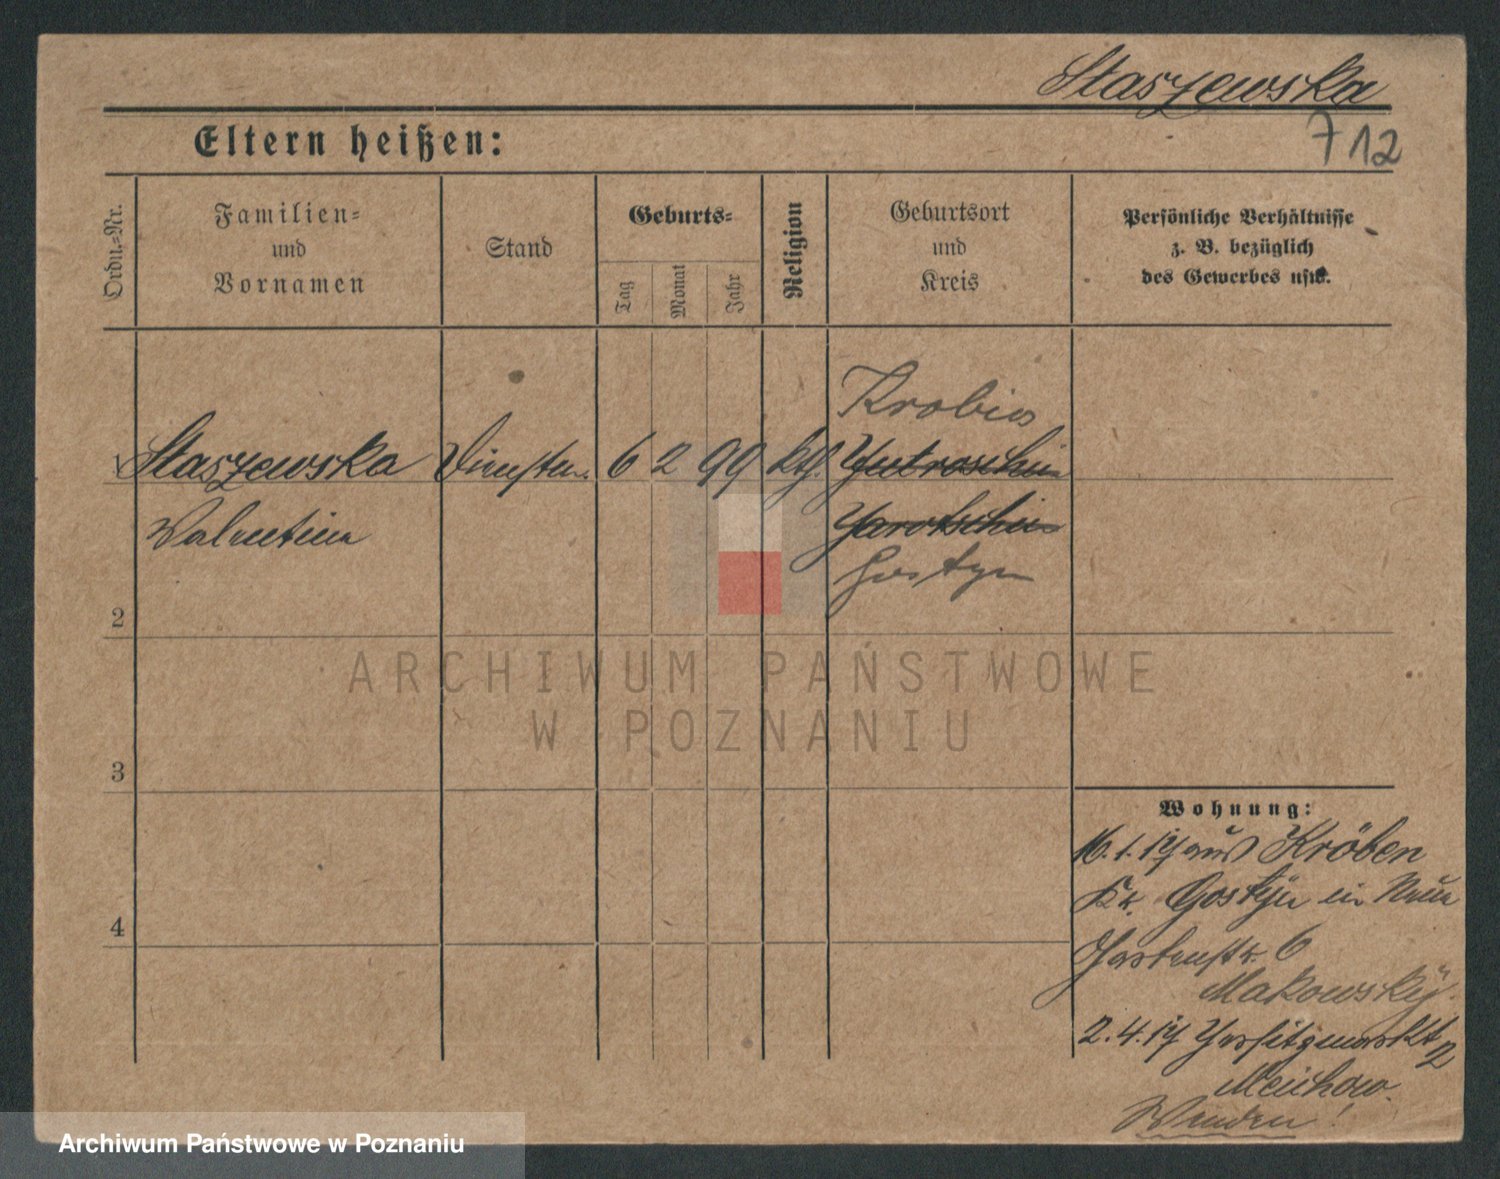 Staszewska
712
Eltern heißen:
Ordn.-Nr.
Familien-
und
Vornamen
Stand
Geburts-
Tag
Monat
Jahr
Religion
Geburtsort
und
Kreis
Persönliche Verhältnisse
z. B. bezüglich
des Gewerbes usw.
Krobia
Staszewska Dienstm. 6 2 99 kth. Jutroschin
Valentina Jarotschin
Gostyn
2
3
4
Wohnung:
16.1.17 aus Kröben
Kr. Gostyn in
Gartenstr. 6
Makowsky.
2.4.17 2
Wenden!
ARCHIWUM PAŃSTWOWE
W POZNANIU
Archiwum Państwowe w Poznaniu